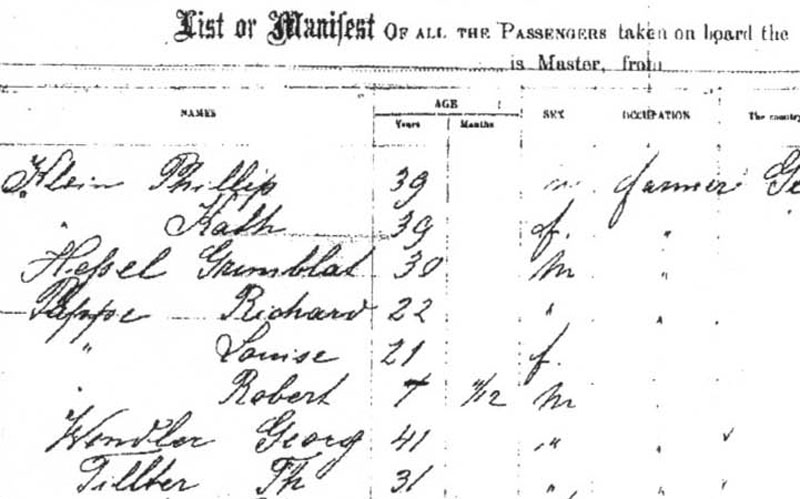 List or Manifest OF ALL THE PASSENGERS taken on board the
is Master, from
AGE
NAMES SEX OCCUPATION The country
Years Months
Klein Phillip 39 m farmer Ge
" Kath 39 f. "
Hessel Grimblat 30 m "
Pappe Richard 22 " "
" Louise 21 f.
" Robert 11/12 m "
Wendler Georg 41 " "
Th 31 " "